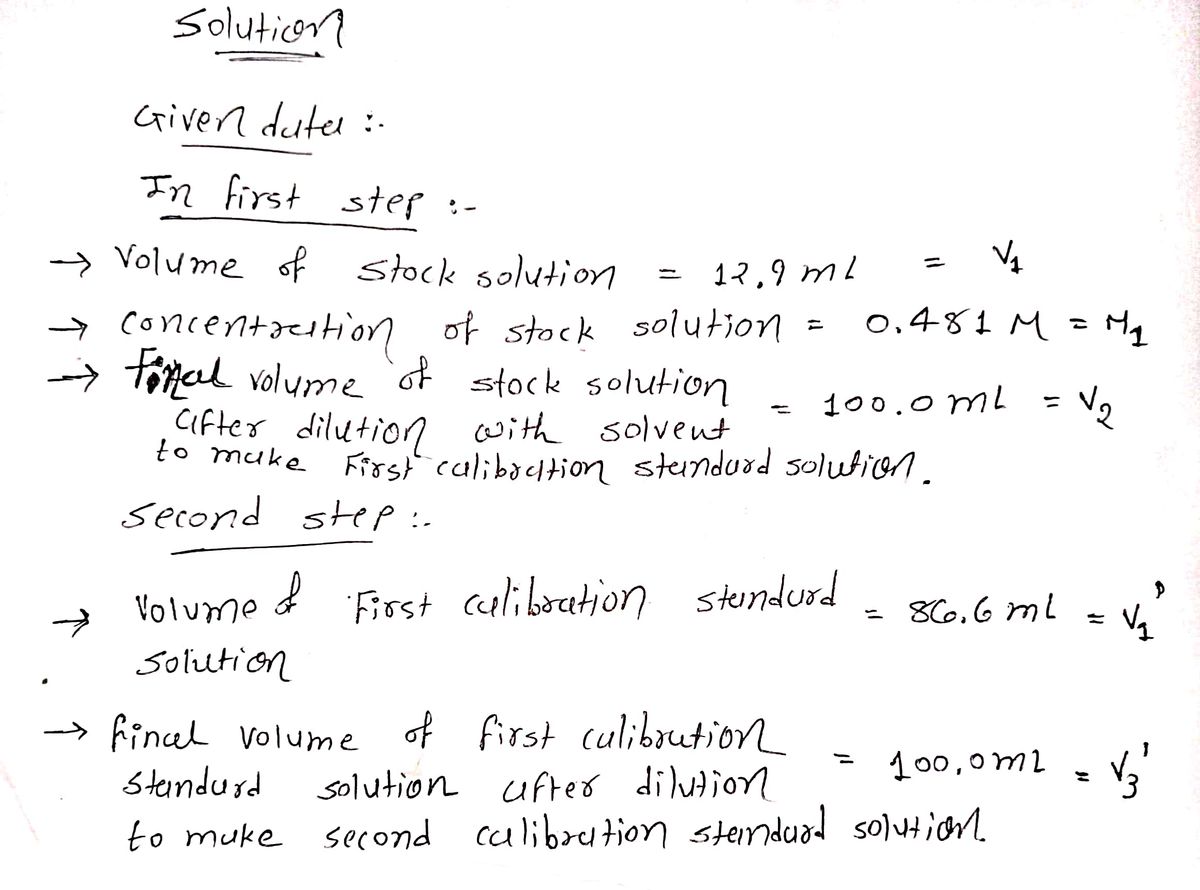 Solution
Given data :-
In first step :-
→ Volume of stock solution = 12.9 mL = V1
→ Concentration of stock solution = 0.481 M = M1
→ Final volume of stock solution
after dilution with solvent = 100.0 mL = V2
to make First calibration standard solution.
Second step :-
→ Volume of First calibration standard = 86.6 mL = V1'
solution
→ final volume of first calibration
standard solution after dilution = 100.0 mL = V3'
to make second calibration standard solution.